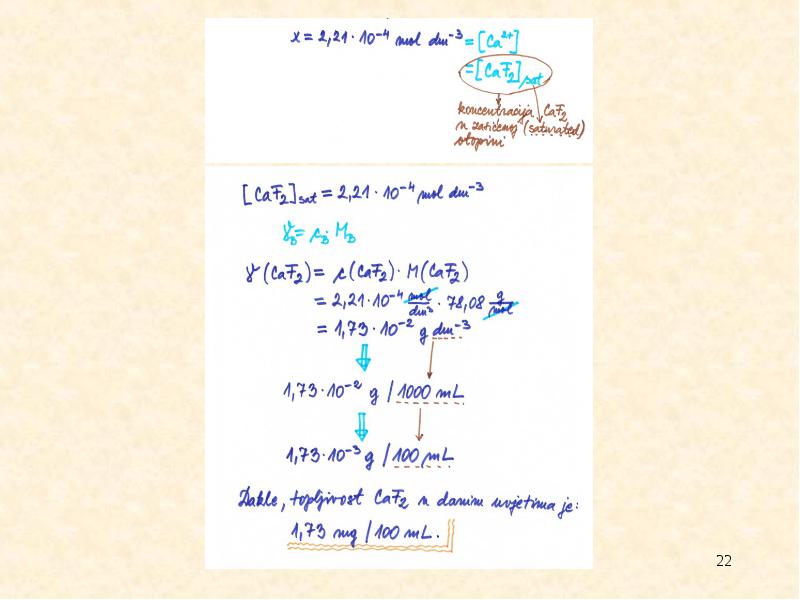 x = 2,21 · 10⁻⁴ mol dm⁻³ = [Ca²⁺]
= [CaF₂]sat
koncentracija CaF₂
u zasićenoj (saturated)
otopini
[CaF₂]sat = 2,21 · 10⁻⁴ mol dm⁻³
γB = cB · MB
γ(CaF₂) = c(CaF₂) · M(CaF₂)
= 2,21 · 10⁻⁴ mol/dm³ · 78,08 g/mol
= 1,73 · 10⁻² g dm⁻³
1,73 · 10⁻² g / 1000 mL
1,73 · 10⁻³ g / 100 mL
Dakle, topljivost CaF₂ u danim uvjetima je:
1,73 mg / 100 mL.
22